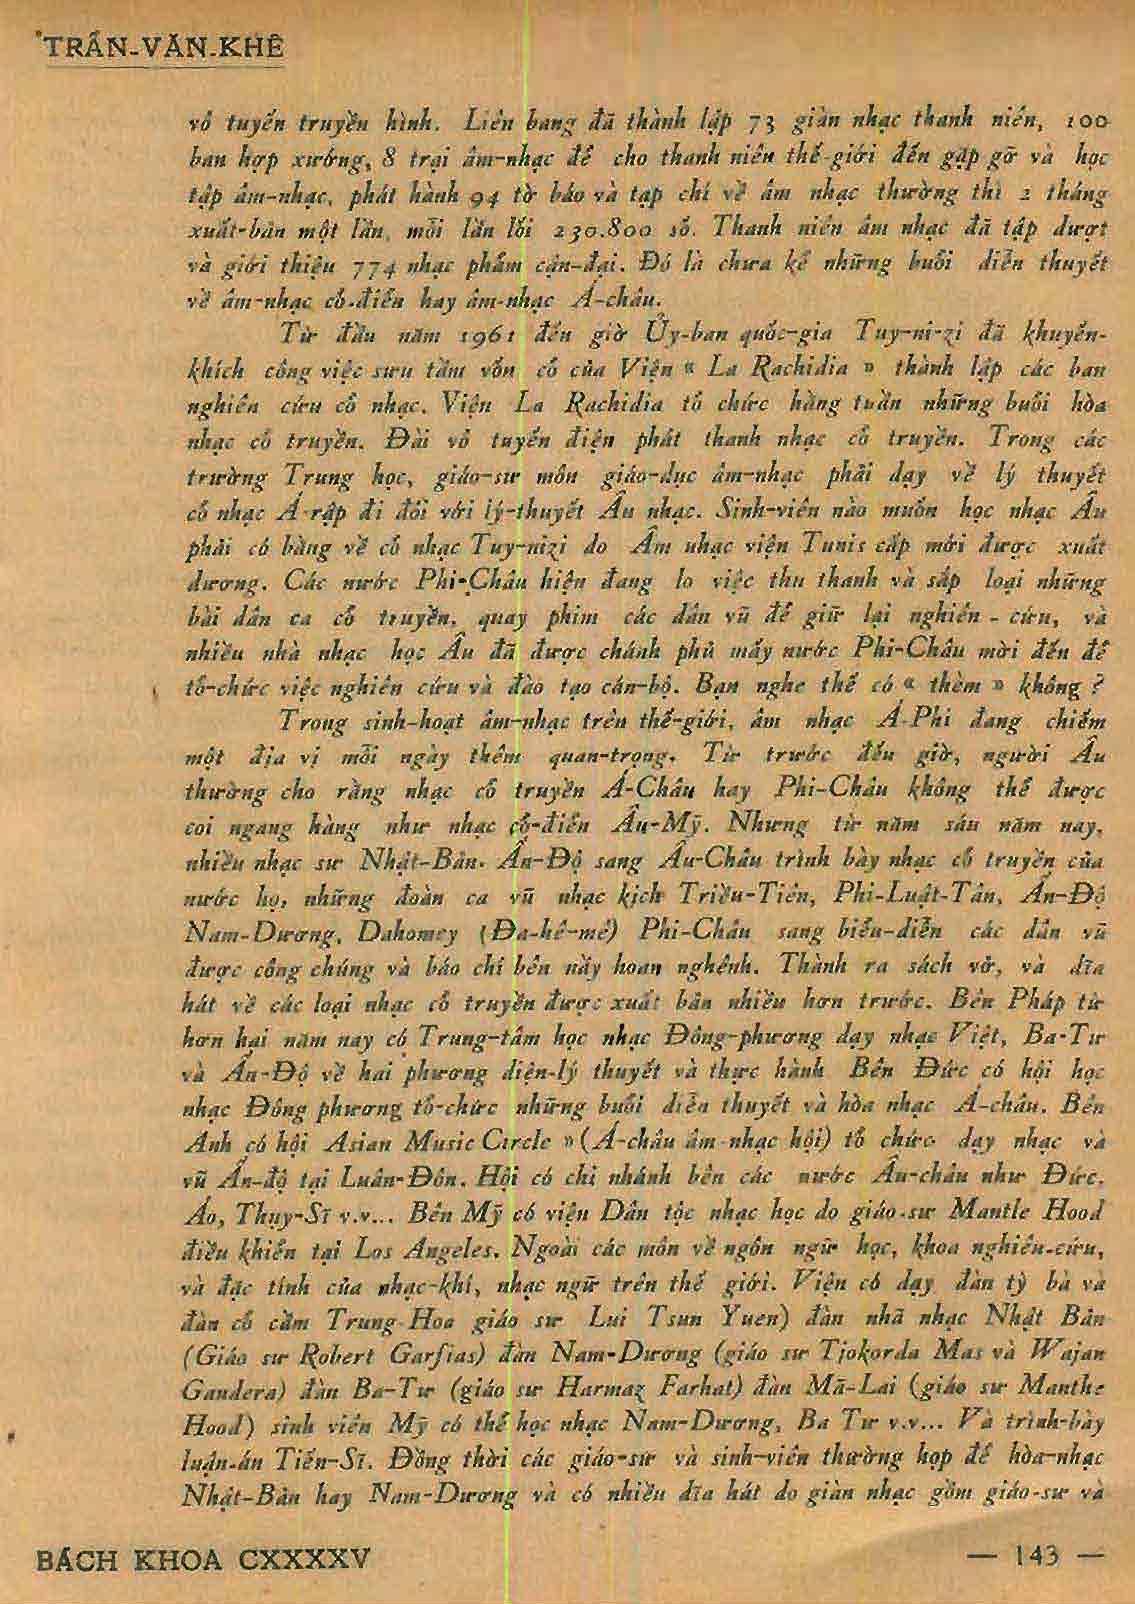 TRẦN-VĂN-KHÊ
vô tuyến truyền hình. Liên bang đã thành lập 73 giàn nhạc thanh niên, 100
ban hợp xướng, 8 trại âm-nhạc để cho thanh niên thế-giới đến gặp gỡ và học
tập âm-nhạc, phát hành 94 tờ báo và tạp chí về âm nhạc thường thì 2 tháng
xuất-bản một lần, mỗi lần lối 230.800 số. Thanh niên âm nhạc đã tập dượt
và giới thiệu 774 nhạc phẩm cận-đại. Đó là chưa kể những buổi diễn thuyết
về âm-nhạc cổ-điển hay âm-nhạc Á-châu.
Từ đầu năm 1961 đến giờ Ủy-ban quốc-gia Tuy-ni-zi đã khuyến-
khích công việc sưu tầm vốn cổ của Viện « La Rachidia » thành lập các ban
nghiên cứu cổ nhạc. Viện La Rachidia tổ chức hàng tuần những buổi hòa
nhạc cổ truyền. Đài vô tuyến điện phát thanh nhạc cổ truyền. Trong các
trường Trung học, giáo-sư môn giáo-dục âm-nhạc phải dạy về lý thuyết
cổ nhạc Á-rập đi đôi với lý-thuyết Âu nhạc. Sinh-viên nào muốn học nhạc Âu
phải có bằng về cổ nhạc Tuy-nizi do Âm nhạc viện Tunis cấp mới được xuất
dương. Các nước Phi-Châu hiện đang lo việc thu thanh và sắp loại những
bài dân ca cổ truyền, quay phim các dân vũ để giữ lại nghiên - cứu, và
nhiều nhà nhạc học Âu đã được chánh phủ mấy nước Phi-Châu mời đến để
tổ-chức việc nghiên cứu và đào tạo cán-bộ. Bạn nghe thế có « thèm » không ?
Trong sinh-hoạt âm-nhạc trên thế-giới, âm nhạc Á-Phi đang chiếm
một địa vị mỗi ngày thêm quan-trọng. Từ trước đến giờ, người Âu
thường cho rằng nhạc cổ truyền Á-Châu hay Phi-Châu không thể được
coi ngang hàng như nhạc cổ-điển Âu-Mỹ. Nhưng từ năm sáu năm nay,
nhiều nhạc sư Nhật-Bản. Ấn-Độ sang Âu-Châu trình bày nhạc cổ truyền của
nước họ, những đoàn ca vũ nhạc kịch Triều-Tiên, Phi-Luật-Tân, Ấn-Độ
Nam-Dương, Dahomey (Đa-hê-mê) Phi-Châu sang biểu-diễn các dân vũ
được công chúng và báo chí bên nầy hoan nghênh. Thành ra sách vở, và dĩa
hát về các loại nhạc cổ truyền được xuất bản nhiều hơn trước. Bên Pháp từ
hơn hai năm nay có Trung-tâm học nhạc Đông-phương dạy nhạc Việt, Ba-Tư
và Ấn-Độ về hai phương diện-lý thuyết và thực hành Bên Đức có hội học
nhạc Đông phương tổ-chức những buổi diễn thuyết và hòa nhạc Á-châu. Bên
Anh có hội Asian Music Circle » (Á-châu âm nhạc hội) tổ chức dạy nhạc và
vũ Ấn-độ tại Luân-Đôn. Hội có chi nhánh bên các nước Âu-châu như Đức,
Áo, Thụy-Sĩ v.v... Bên Mỹ có viện Dân tộc nhạc học do giáo-sư Mantle Hood
điều khiển tại Los Angeles. Ngoài các môn về ngôn ngữ học, khoa nghiên-cứu,
và đặc tính của nhạc-khí, nhạc ngữ trên thế giới. Viện có dạy đàn tỳ bà và
đàn cổ cầm Trung-Hoa giáo sư Lui Tsun Yuen) đàn nhã nhạc Nhật Bản
(Giáo sư Robert Garfias) đàn Nam-Dương (giáo sư Tjokorda Mas và Wajan
Gandera) đàn Ba-Tư (giáo sư Harmaz Farhat) đàn Mã-Lai (giáo sư Manthe
Hood) sinh viên Mỹ có thể học nhạc Nam-Dương, Ba Tư v.v... Và trình-bày
luận-án Tiến-Sĩ. Đồng thời các giáo-sư và sinh-viên thường họp để hòa-nhạc
Nhật-Bản hay Nam-Dương và có nhiều dĩa hát do giàn nhạc gồm giáo-sư và
BÁCH KHOA CXXXXV — 143 —